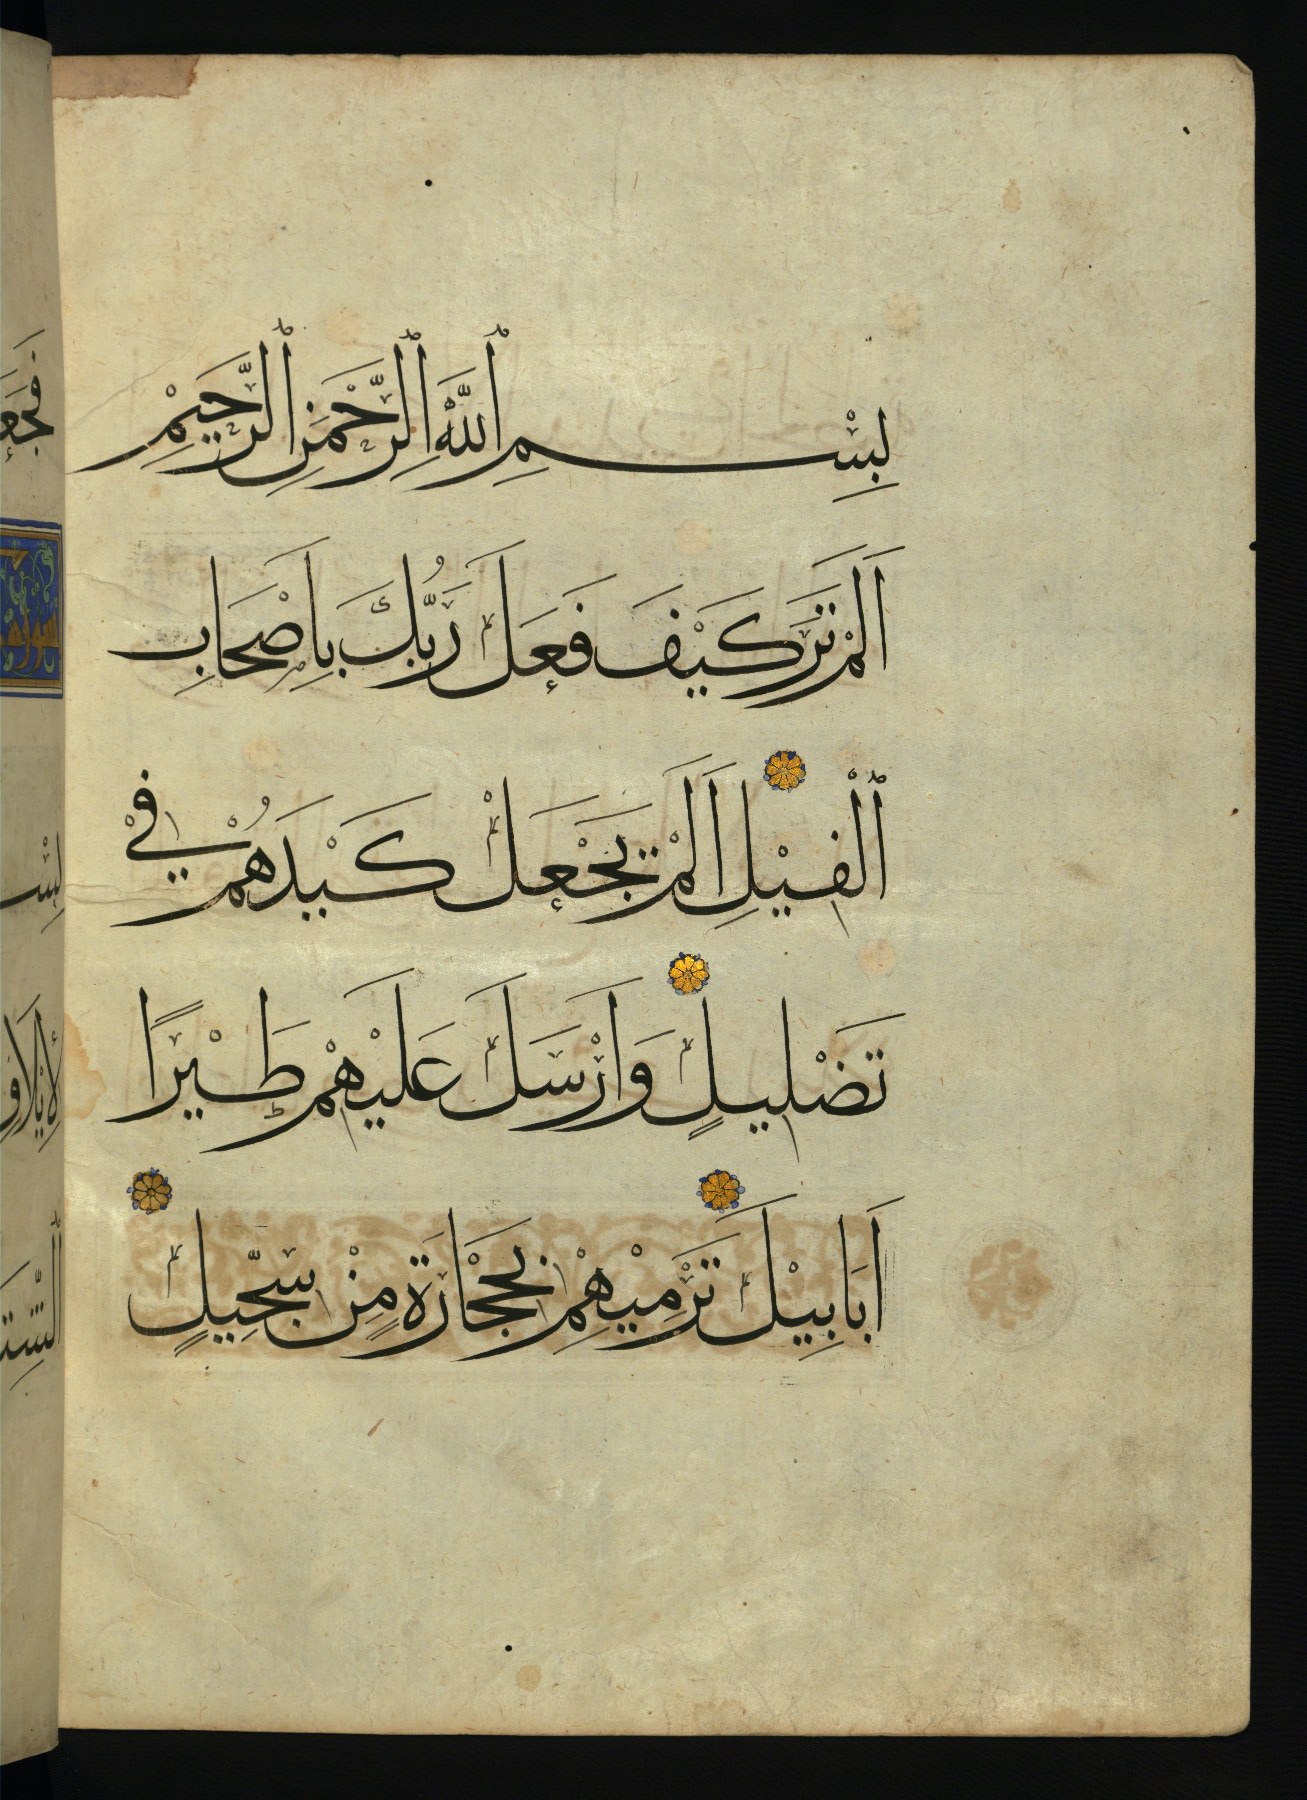 بِسْمِ ٱللَّهِ ٱلرَّحْمَنِ ٱلرَّحِيمِْ
اَلَمْ تَرَ كَيْفَ فَعَلَ رَبُّكَ بِاَصْحَابِ
ٱلْفِيْلِ اَلَمْ يَجْعَلْ كَيْدَهُمْ فِيْ
تَضْلِيلٍ وَاَرْسَلَ عَلَيْهِمْ طَيْرًا
اَبَابِيْلَ تَرْمِيْهِمْ بِحِجَارَةٍ مِنْ سِجِّيلٍ